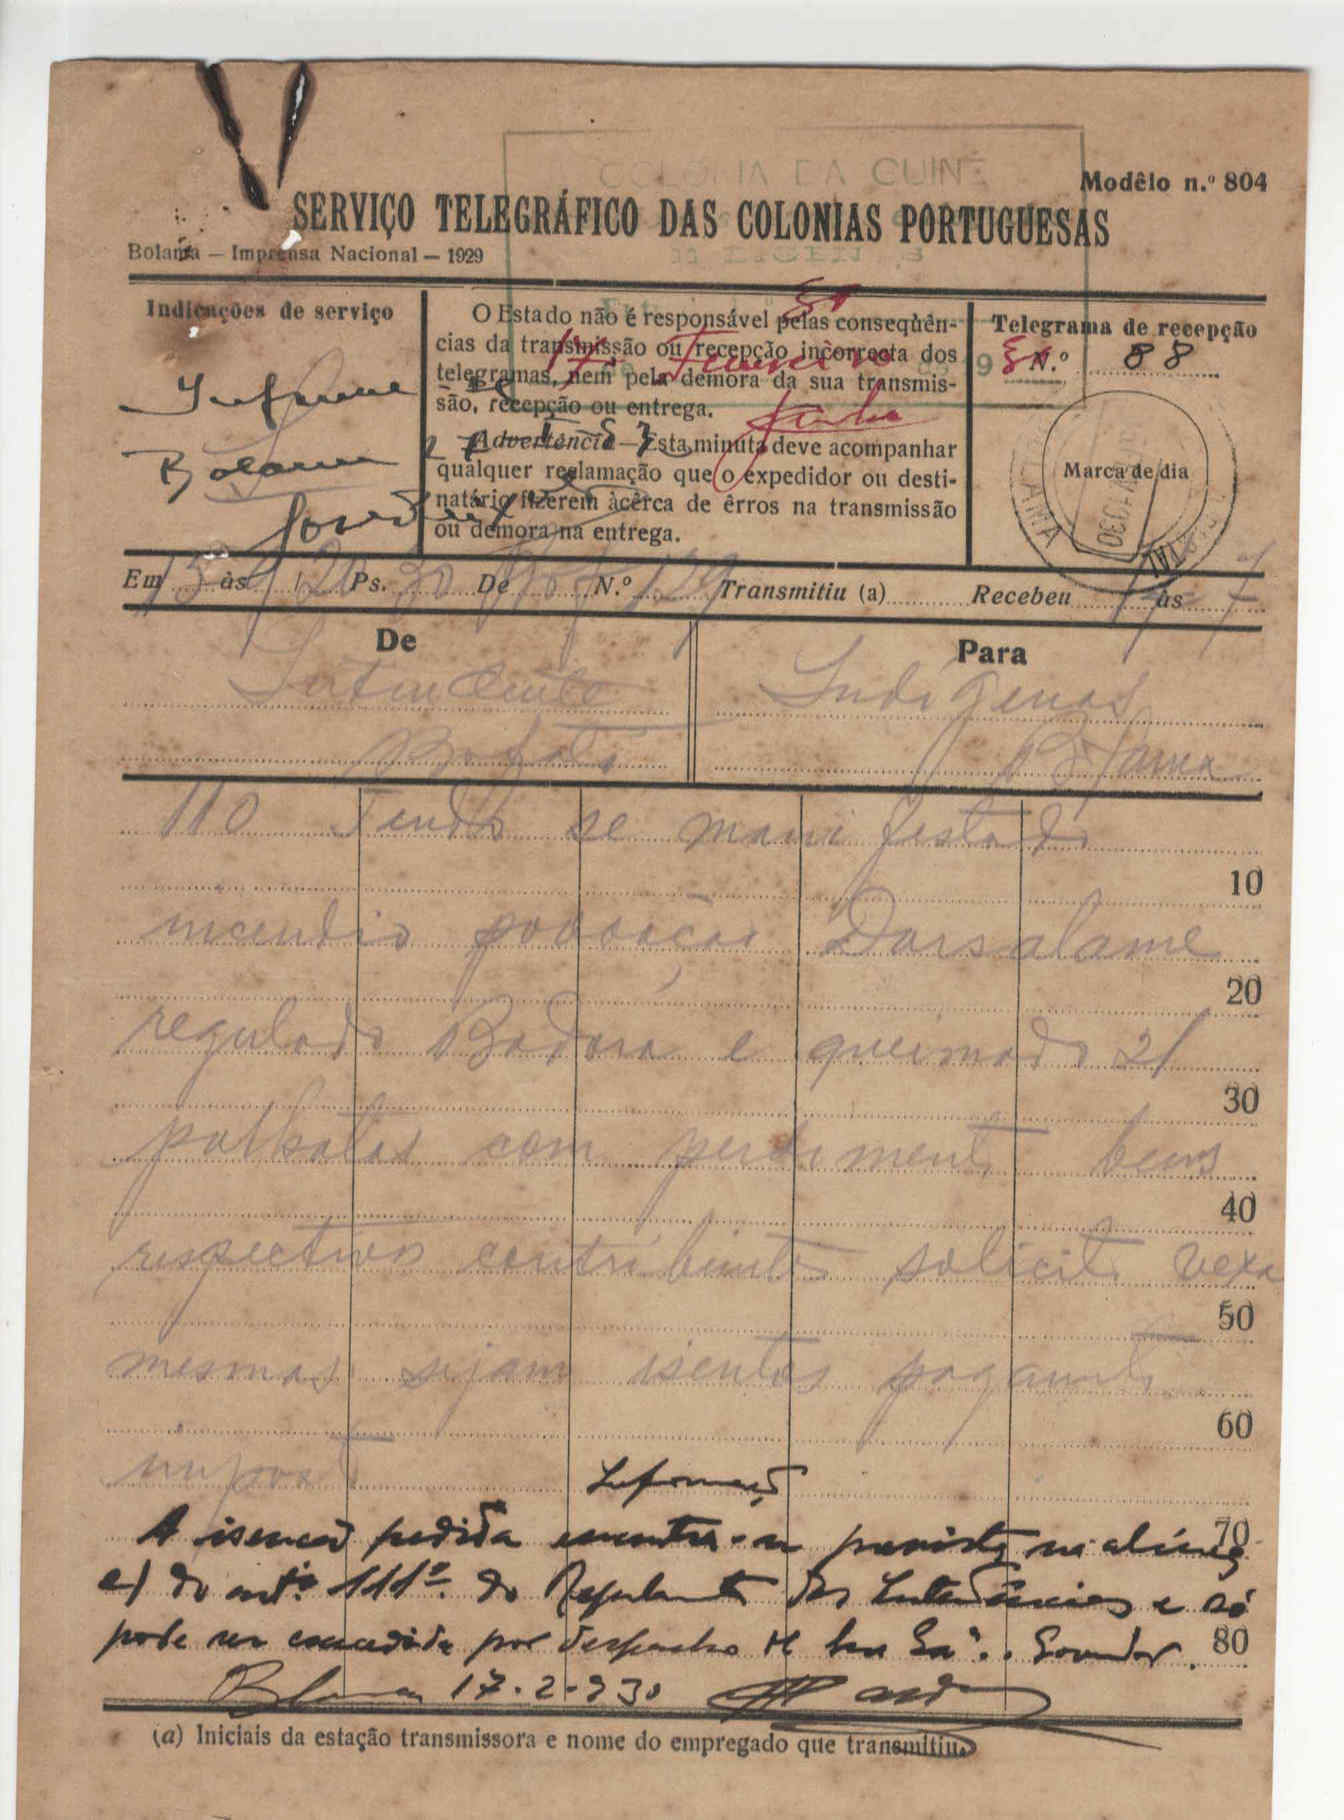 COLONIA DA GUINÉ
Modêlo n.º 804
SERVIÇO TELEGRÁFICO DAS COLONIAS PORTUGUESAS
Bolama — Imprensa Nacional — 1929
Indicações de serviço
Informe
Bolama
O Estado não é responsável pelas conseqùên-
cias da transmissão ou recepção incorrecta dos
telegramas, nem pela demora da sua transmis-
são, recepção ou entrega.
Advertência — Esta minuta deve acompanhar
qualquer reclamação que o expedidor ou desti-
natário fizerem àcêrca de êrros na transmissão
ou demora na entrega.
17 Fevereiro
Telegrama de recepção
N.º 88
Marca de dia
Em 15 às Ps. 30 De N.º 129 Transmitiu (a) Recebeu às
De
Para
Indígenas
Bolama
110 Tendo se manifestado
incendio povoação Darsalame
regulado Badora e queimado 21
palhotas com perdimento bens
respectivos contribuintes solicito vexa
mesmos sejam isentos pagamento
imposto
Informação
A isenção pedida encontra-se prevista na alínea
e) do artº. 111º. do Regulamento das Intendências e só
pode ser concedida por despacho de Sua Exª. o Governador.
Bolama 17-2-930
(a) Iniciais da estação transmissora e nome do empregado que transmitiu.
10
20
30
40
50
60
70
80